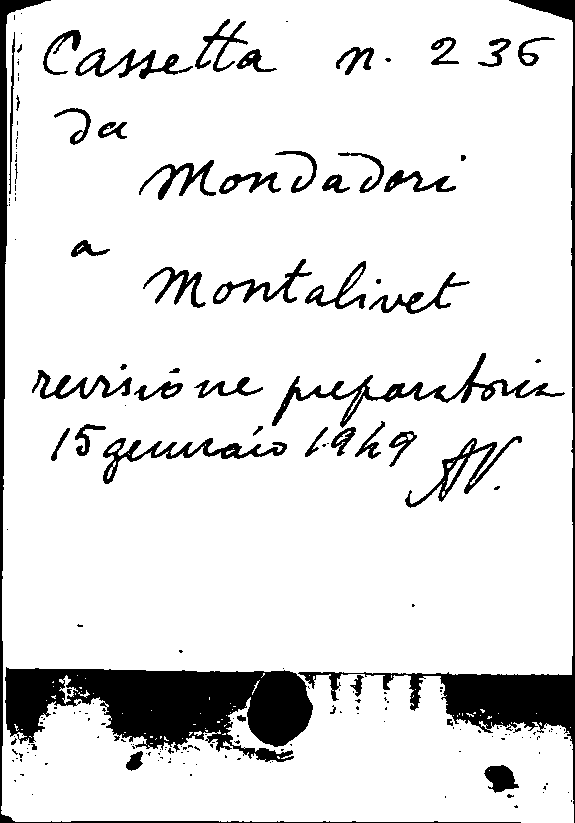 Cassetta n. 236
da
Mondadori
a
Montalivet
revisione preparatoria
15 gennaio 1949 AV.